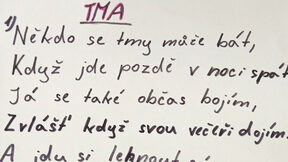 TMA
1) Někdo se tmy může bát,
Když jde pozdě v noci spát
Já se také občas bojím,
Zvlášť když svou večeři dojím.
A jdu si lehnout